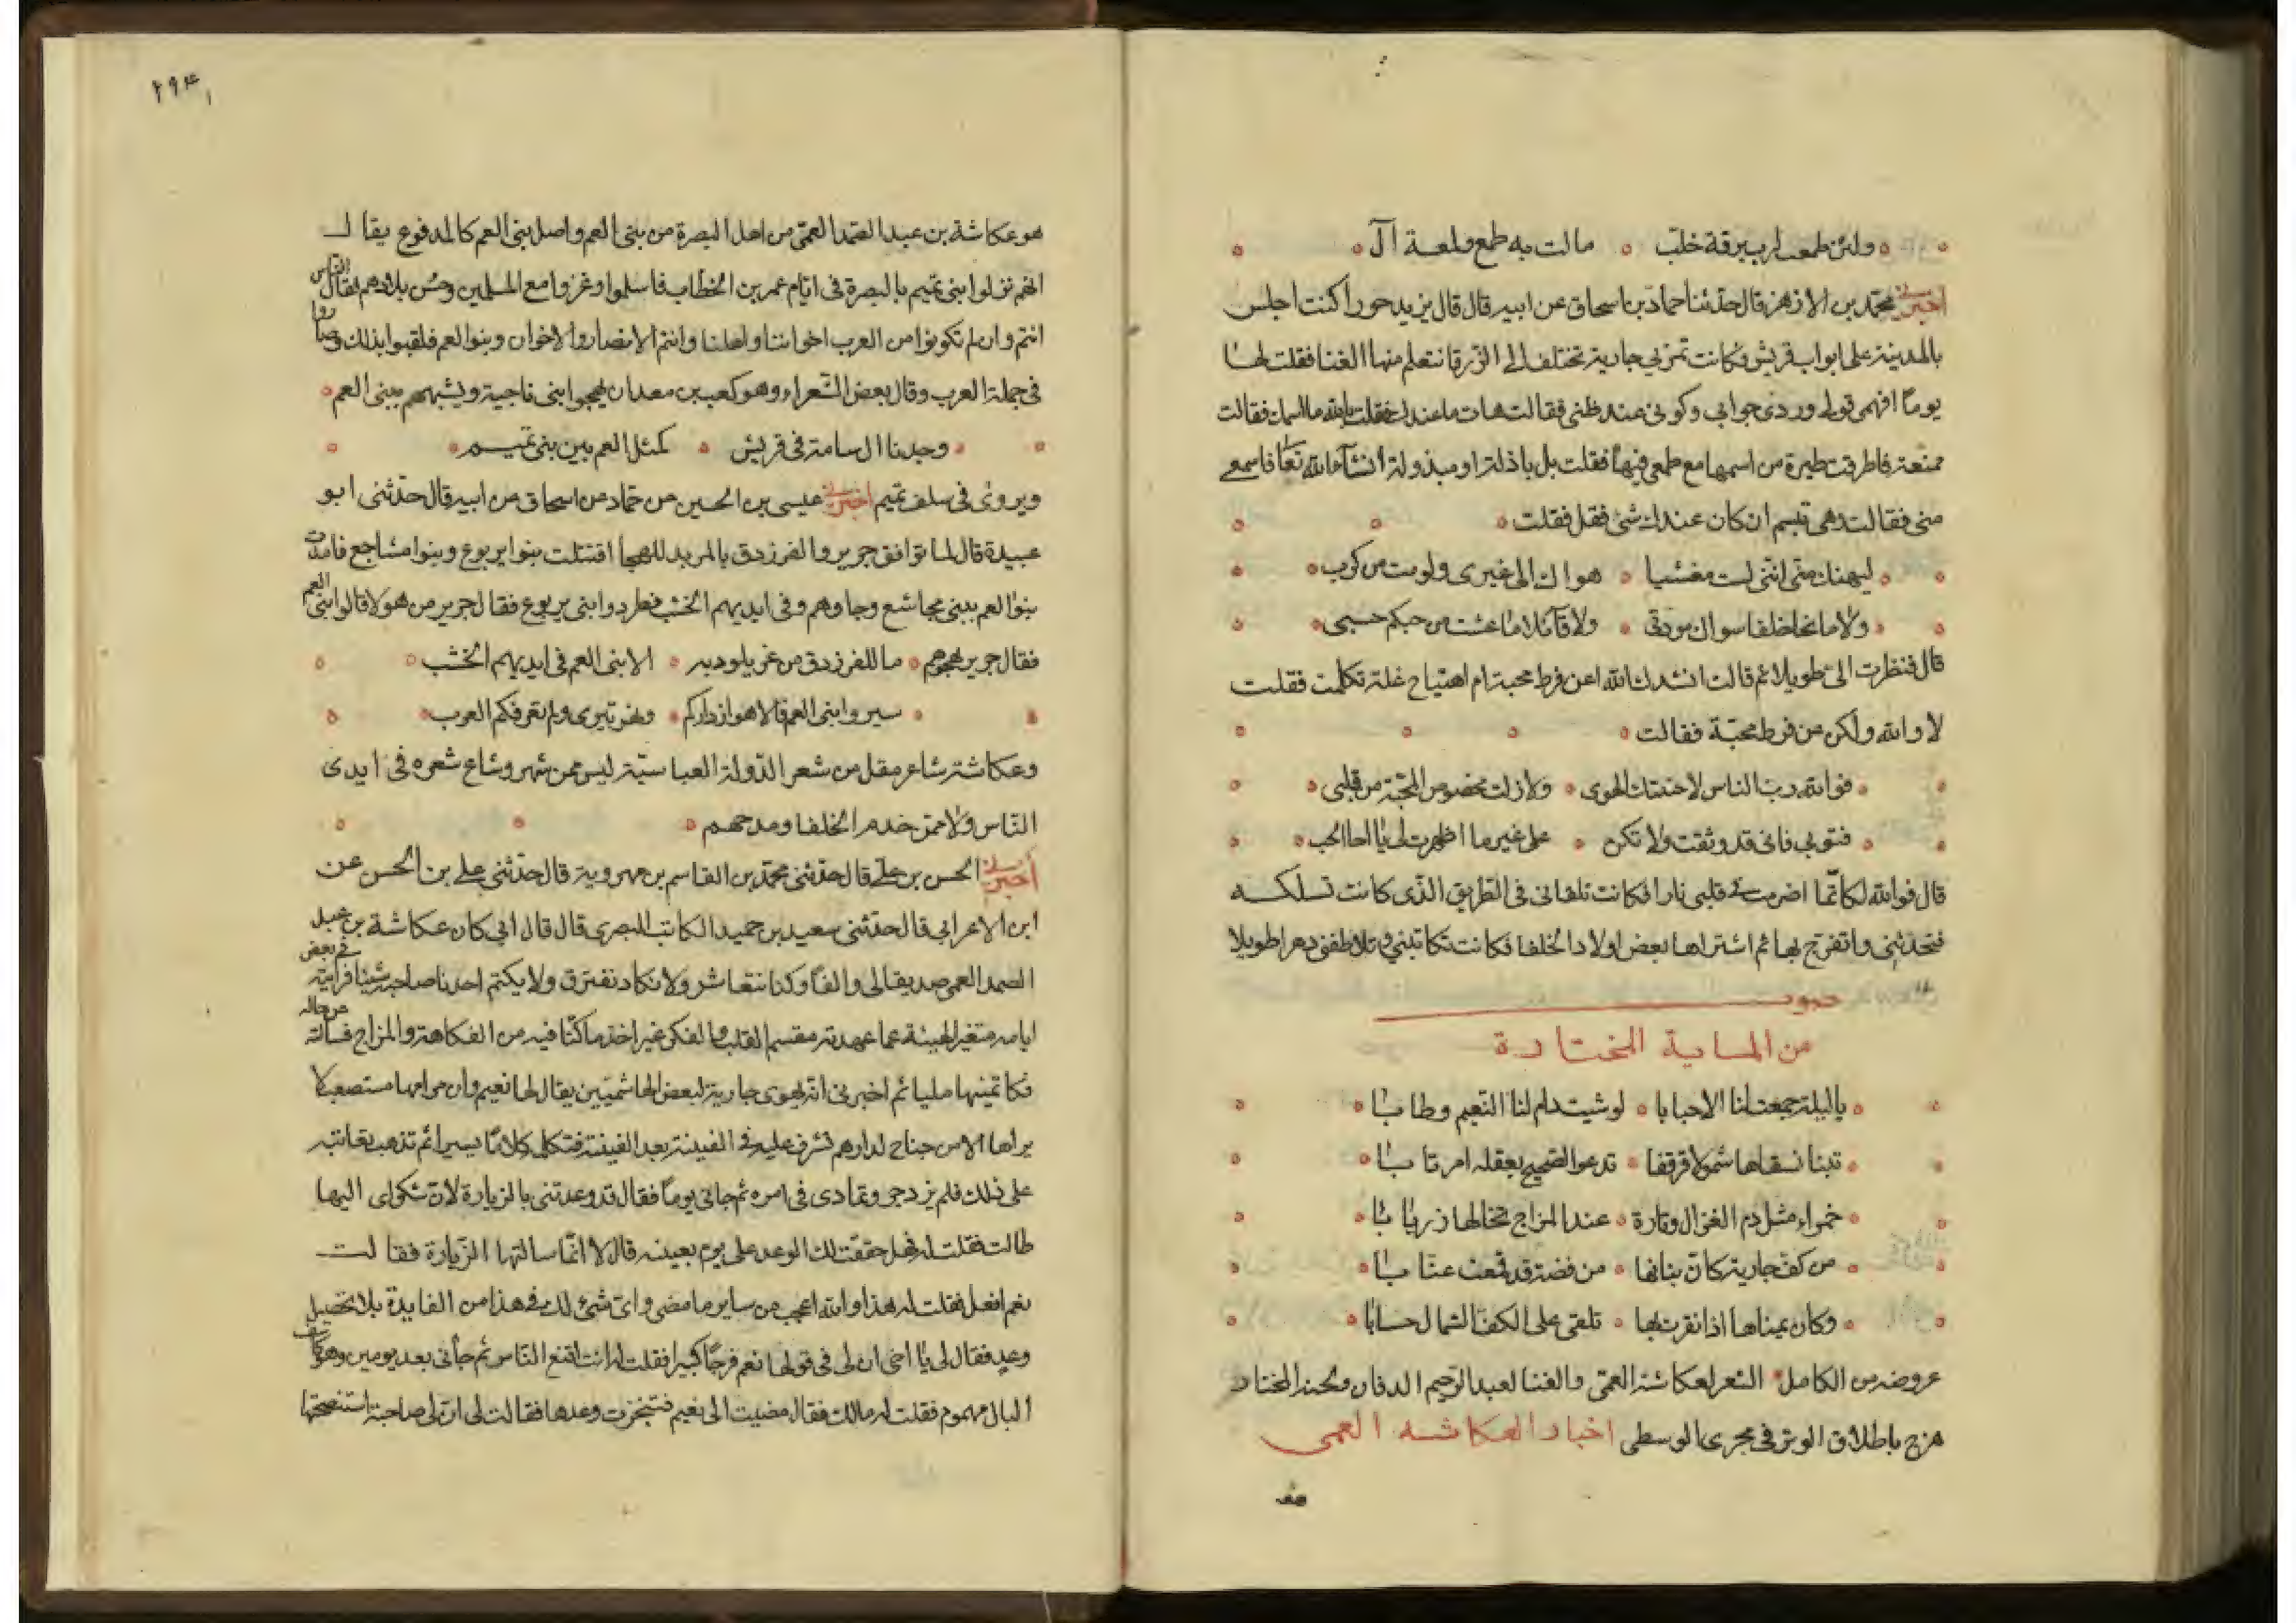 ولئن طمعت لرب برقة خلب ۰ مالت به طمع ولمعة آل
اخبرني محمد بن الازهر قال حدثنا حماد بن اسحاق عن ابيه قال قال يزيد حورا كنت اجلس
بالمدينة على ابواب قريش وكانت تمر بي جارية تختلف الى الزرقا تتعلم منها الغنا فقلت لها
يوما افهمى قولى وردى جوابى وكونى عند ظنى فقالت هات ما عندك فقلت بالله ما اسمك فقالت
ممنعة فاطرقت طيرة من اسمها مع طمعى فيها فقلت بل باذلة او مبذولة انشآ الله تعا فاسمعى
منى فقالت وهى تبسم ان كان عندك شئ فقل فقلت
ليهنك منى اننى لست مفشيا ۰ هواك الى غيرى ولو مت من كرب
ولا مانحا خلقا سواك مودتى ۰ ولا قآئلا ما عشت من حبكم حسبى
قال فنظرت الى طويلا ثم قالت انشدك الله اعن فرط محبة ام اهتياج غلة تكلمت فقلت
لا والله ولكن عن فرط محبة فقالت
فوالله رب الناس لا خنتك الهوى ۰ ولا زلت مخصوص المحبة من قلبى
فثق بى فانى قد وثقت ولا تكن ۰ على غير ما اظهرت لى يا اخا الحب
قال فوالله لكانما اضرمت فى قلبى نارا فكانت تلقانى فى الطريق الذى كانت تسلكه
فتحدثنى واتفرج بها ثم اشتراها بعض اولاد الخلفا فكانت تكاتبنى وتلاطفنى دهرا طويلا
صوت
من الماية المختارة
يا ليلة جمعت لنا الاحبابا ۰ لو شيت دام لنا النعيم وطابا
تبنا نسقاها شمولا قرقفا ۰ تدعو الصحيح بعقله مرتابا
حمراء مثل دم الغزال وتارة ۰ عند المزاج تخالها زريابا
من كف جارية كان بنانها ۰ من فضة قد قمعت عنابا
وكان يمناها اذا نقرت بها ۰ تلقى على الكف الشمال حسابا
عروضه من الكامل الشعر لعكاشة العمى والغنا لعبد الرحيم الدفاف ولحنه المختار
هزج باطلاق الوتر فى مجرى الوسطى اخبار العكاشه العمى
هو
۲۹۴
هو عكاشة بن عبد الصمد العمى من اهل البصرة من بنى العم واصل بنى العم كالمدفوع يقال
انهم نزلوا ببنى تميم بالبصرة فى ايام عمر بن الخطاب فاسلموا وغزوا مع المسلمين وحسن بلاؤهم فقال الناس
انتم وان لم تكونوا من العرب اخواننا واهلنا وانتم الانصار والاخوان وبنو العم فلقبوا بذلك وصاروا
فى جملة العرب وقال بعض الشعراء وهو كعب بن معدان يهجوا بنى ناجية ويشبههم ببنى العم
وجدنا ال سامة فى قريش ۰ كمثل العم بين بنى تميم
ويروى فى سلف تميم اخبرني عيسى بن الحسين عن حماد بن اسحاق عن ابيه قال حدثنى ابو
عبيدة قال لما تواقف جرير والفرزدق بالمربد للهجا اقتتلت بنوا يربوع وبنوا مشاجع فامدت
بنوا العم ببنى مجاشع وجاوهم وفى ايديهم الخشب فطردوا بنى يربوع فقال جرير من هولا قالوا بنى العم
فقال جرير يهجوهم ۰ ما للفرزدق من عز يلوذ به ۰ الا بنى العم فى ايديهم الخشب
سيروا بنى العم فالاهواز داركم ۰ ونهر تيرى ولم تعرفكم العرب
وعكاشة شاعر مقل من شعر الدولة العباسية ليس ممن شهر وشاع شعره فى ايدى
الناس ولا ممن خدم الخلفا ومدحهم
اخبرني الحسن بن على قال حدثنى محمد بن القاسم بن مهروية قال حدثنى على بن الحسن عن
ابن الاعرابى قال حدثنى سعيد بن حميد الكاتب البصرى قال قال ابى كان عكاشة بن عبد
الصمد العمى صديقا لى والفا وكنا نتعاشر ولا نكاد نفترق ولا يكتم احدنا صاحبه شيئا فرايته فى بعض
ايامه متغير الهيئة عما عهدته مقسم القلب والفكر غير اخذ ما كنا فيه من الفكاهة والمزاح فسالته عن حاله
فكاتمنيها مليا ثم اخبرنى انه يهوى جارية لبعض الهاشميين يقال لها نعيم وان مرامها مستصعب لا
يراها الا من جناح لدارهم تشرف عليه فى الفينة بعد الفينة فتكلمه كلاما يسيرا ثم تذهب فعاتبته
على ذلك فلم يزدجر وتمادى فى امره ثم جانى يوما فقال قد وعدتنى بالزيارة لان شكواى اليها
طالت فقلت له فهل حققت لك الوعد على يوم بعينه قال لا انما سالتها الزيارة فقالت
نعم افعل فقلت له هذا والله اعجب من ساير ما مضى واى شئ لك فى هذا من الفايدة بلا تحصيل
وعد فقال لى يا اخى ان لى فى قولها نعم فرجا كبيرا فقلت له انت اقنع الناس ثم جأنى بعد يومين وهو كاسف
البال مهموم فقلت له مالك فقال مضيت الى نعيم فتنجزت وعدها فقالت لى ان لى صاحبة استنصحتها